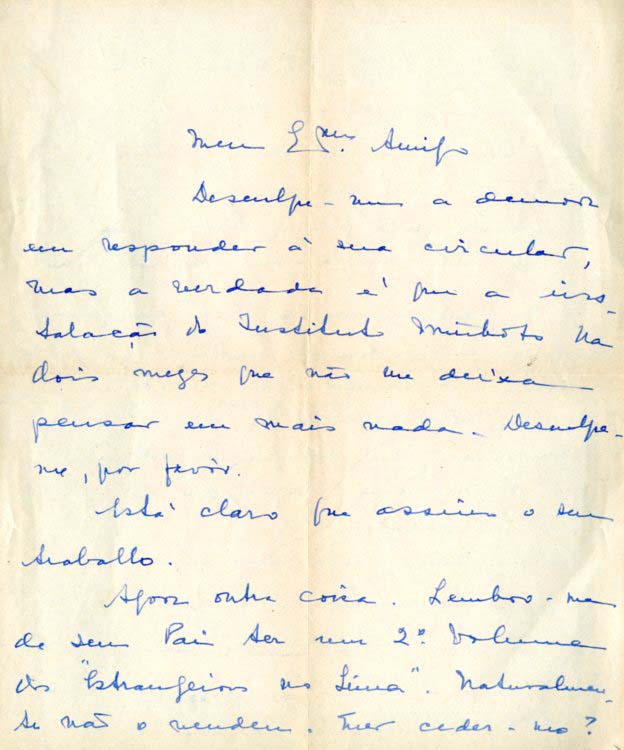 Meu Exmo. Amigo
Desculpe-me a demora
em responder à sua circular,
mas a verdade é que a ins-
talação do Instituto Minhoto há
dois mezes que não me deixa
pensar em mais nada. Desculpe-
me, por favôr.
Está claro que assino o seu
trabalho.
Agora outra coisa. Lembro-me
de seu Pai ter um 2º. volume
dos "Estrangeiros no Lima". Naturalmen-
te não o vendem. Quer ceder-mo?